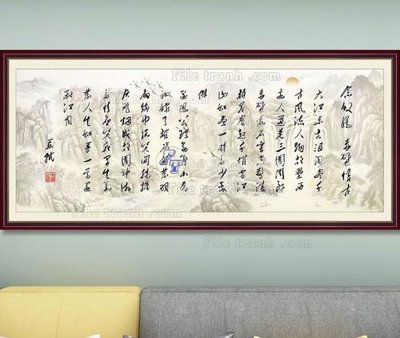 念奴嬌 赤壁懷古
大江東去浪淘盡千
古風流人物故壘西
邊人道是三國周郎
赤壁亂石穿空驚濤
拍岸卷起千堆雪江
山如畫一時多少豪
傑
遥想公瑾當年小喬
初嫁了雄姿英發
羽扇綸巾談笑間檣櫓
灰飛煙滅故國神遊
多情應笑我早生華
發人生如夢一尊還
酹江月
蘇軾
File tranh.com
File tranh.com
File tranh.com